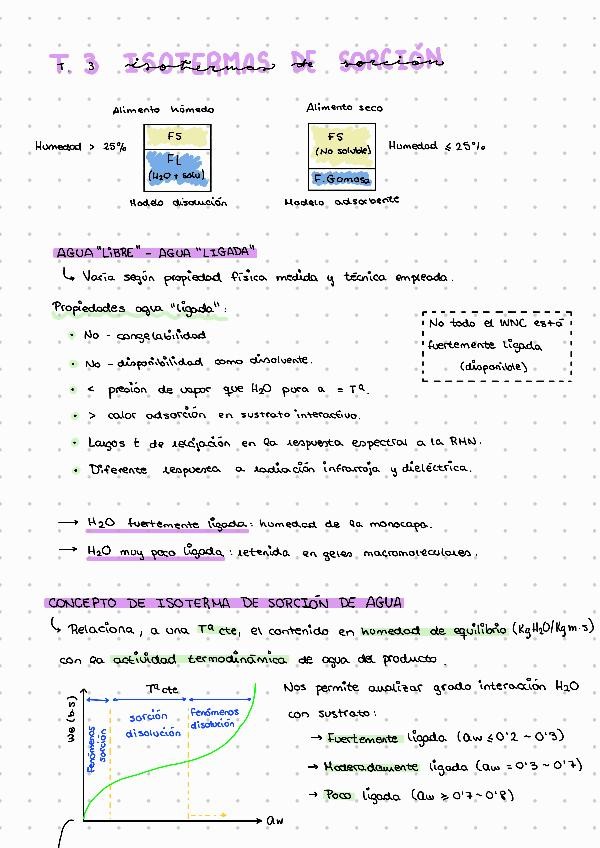 T. 3 ISOTERMAS DE SORCIÓN
isotermas de sorción
Alimento húmedo
Humedad > 25%
FS
FL
(H2O + solu)
Modelo disolución
Alimento seco
FS
(No soluble)
F. Gomosa
Humedad ≤ 25%
Modelo adsorbente
AGUA "LIBRE" - AGUA "LIGADA"
↳ Varía según propiedad física medida y técnica empleada.
Propiedades agua "ligada":
• No - congelabilidad
• No - disponibilidad como disolvente.
• < presión de vapor que H2O pura a = Tª.
• > calor adsorción en sustrato interactivo.
• Largos t de relajación en la respuesta espectral a la RHN.
• Diferente respuesta a radiación infrarroja y dieléctrica.
No todo el WNC está
fuertemente ligada
(disponible)
→ H2O fuertemente ligada: humedad de la monocapa.
→ H2O muy poco ligada: retenida en geles macromoleculares.
CONCEPTO DE ISOTERMA DE SORCIÓN DE AGUA
↳ Relaciona, a una Tª cte, el contenido en humedad de equilibrio (KgH2O/Kg m.s)
con la actividad termodinámica de agua del producto.
Tª cte
We (b.s)
Fenómenos
sorción
sorción
disolución
Fenómenos
disolución
aw
Nos permite analizar grado interacción H2O
con sustrato:
→ Fuertemente ligada (aw ≤ 0'2 ~ 0'3)
→ Moderadamente ligada (aw = 0'3 ~ 0'7)
→ Poco ligada (aw ≥ 0'7 ~ 0'8)